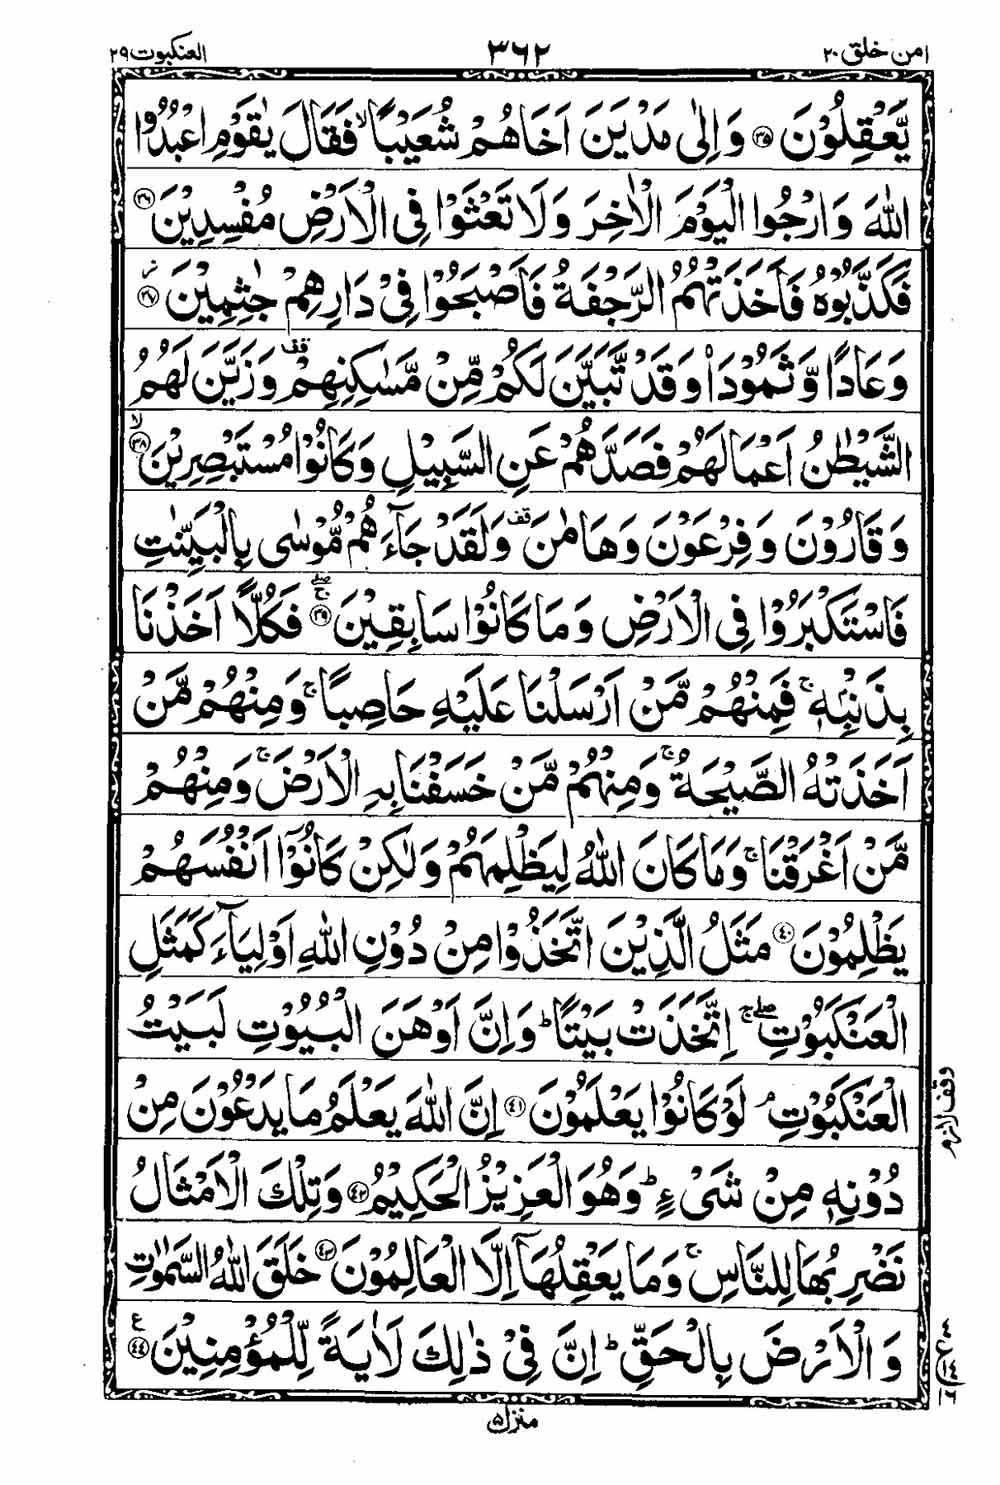 امن خلق ۲۰ ۳۶۲ العنكبوت ۲۹
يَّعْقِلُوْنَ ۝۳۵ وَاِلٰى مَدْيَنَ اَخَاهُمْ شُعَيْبًا ۙ فَقَالَ يٰقَوْمِ اعْبُدُوا
اللّٰهَ وَارْجُوا الْيَوْمَ الْاٰخِرَ وَلَا تَعْثَوْا فِى الْاَرْضِ مُفْسِدِيْنَ ۝۳۶
فَكَذَّبُوْهُ فَاَخَذَتْهُمُ الرَّجْفَةُ فَاَصْبَحُوْا فِىْ دَارِهِمْ جٰثِمِيْنَ ۝۳۷ ز
وَعَادًا وَّثَمُوْدَا۟ وَقَدْ تَّبَيَّنَ لَكُمْ مِّنْ مَّسٰكِنِهِمْ قف وَزَيَّنَ لَهُمُ
الشَّيْطٰنُ اَعْمَالَهُمْ فَصَدَّهُمْ عَنِ السَّبِيْلِ وَكَانُوْا مُسْتَبْصِرِيْنَ ۝۳۸ ۙ
وَقَارُوْنَ وَفِرْعَوْنَ وَهَامٰنَ قف وَلَقَدْ جَآءَهُمْ مُّوْسٰى بِالْبَيِّنٰتِ
فَاسْتَكْبَرُوْا فِى الْاَرْضِ وَمَا كَانُوْا سَابِقِيْنَ ۝۳۹ ۖۚ فَكُلًّا اَخَذْنَا
بِذَنْۢبِهٖ ۚ فَمِنْهُمْ مَّنْ اَرْسَلْنَا عَلَيْهِ حَاصِبًا ۚ وَمِنْهُمْ مَّنْ
اَخَذَتْهُ الصَّيْحَةُ ۚ وَمِنْهُمْ مَّنْ خَسَفْنَا بِهِ الْاَرْضَ ۚ وَمِنْهُمْ
مَّنْ اَغْرَقْنَا ۚ وَمَا كَانَ اللّٰهُ لِيَظْلِمَهُمْ وَلٰكِنْ كَانُوْٓا اَنْفُسَهُمْ
يَظْلِمُوْنَ ۝۴۰ مَثَلُ الَّذِيْنَ اتَّخَذُوْا مِنْ دُوْنِ اللّٰهِ اَوْلِيَآءَ كَمَثَلِ
الْعَنْكَبُوْتِ ۖۚ اِتَّخَذَتْ بَيْتًا ؕ وَاِنَّ اَوْهَنَ الْبُيُوْتِ لَبَيْتُ
الْعَنْكَبُوْتِ ۘ لَوْ كَانُوْا يَعْلَمُوْنَ ۝۴۱ اِنَّ اللّٰهَ يَعْلَمُ مَا يَدْعُوْنَ مِنْ
وقف لازم
دُوْنِهٖ مِنْ شَىْءٍ ؕ وَهُوَ الْعَزِيْزُ الْحَكِيْمُ ۝۴۲ وَتِلْكَ الْاَمْثَالُ
نَضْرِبُهَا لِلنَّاسِ ۚ وَمَا يَعْقِلُهَآ اِلَّا الْعَالِمُوْنَ ۝۴۳ خَلَقَ اللّٰهُ السَّمٰوٰتِ
وَالْاَرْضَ بِالْحَقِّ ؕ اِنَّ فِىْ ذٰلِكَ لَاٰيَةً لِّلْمُؤْمِنِيْنَ ۝۴۴ ع
منزل ۵